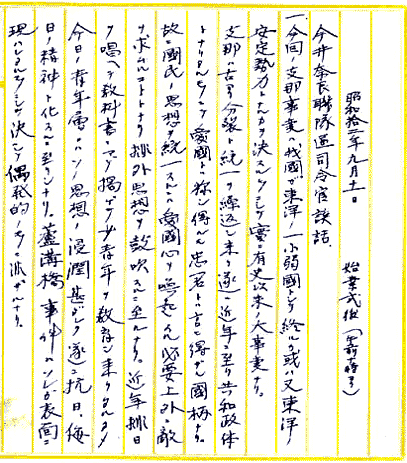 昭和拾二年九月十一日　始業式後(午前十時了)
今井奈良聯隊區司令官談話
一、今回ノ支那事変ハ我國ガ東洋ノ一小弱國トシテ終ルカ或ハ又東洋ノ
安定勢力トナルカヲ決スルモノニシテ實ニ有史以来ノ大事変ナリ。
支那ハ古来分裂ト統一ヲ繰返シ来リ遂ニ近年ニ至リ共和政体
トナリタルモノニシテ愛國ト称シ得ベキ忠君ト言ヒ得ザル國柄ナリ
故ニ國民ノ思想ヲ統一スルニハ愛國心ヲ喚起スル必要上外ニ敵
ヲ求ムルコトトナリ排外思想ヲ鼓吹スルニ至レルナリ。近年排日
ヲ唱ヘテ教科書ニマデ掲ゲ少青年ヲ教育シ来リタルタメ
今日ノ青年層ハソノ思想ノ浸潤甚ダシク遂ニ抗日、侮
日ノ精神ト化スニ至レリ。蘆溝橋事件ハソレガ表面ニ
現ハレタルモノニシテ決シテ偶我的ノモノニ非ザルナリ。